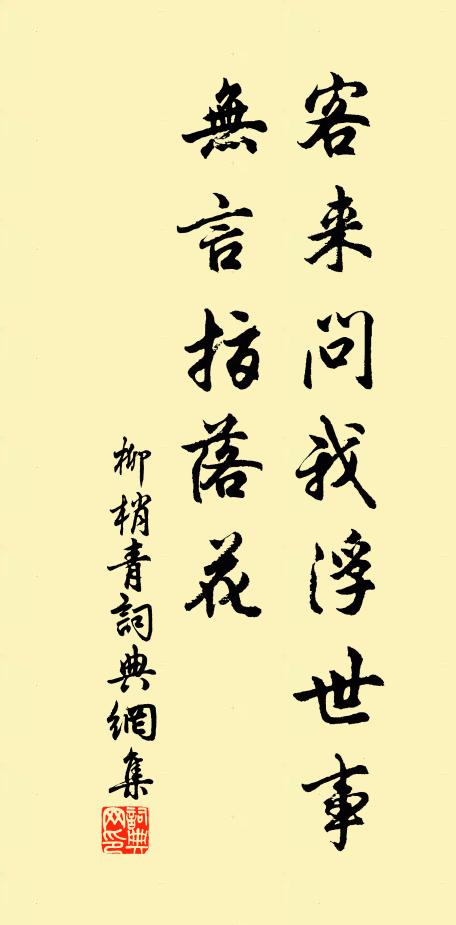 客来問我浮世事
無言指落花
柳梢青詞典網集
詞典网印